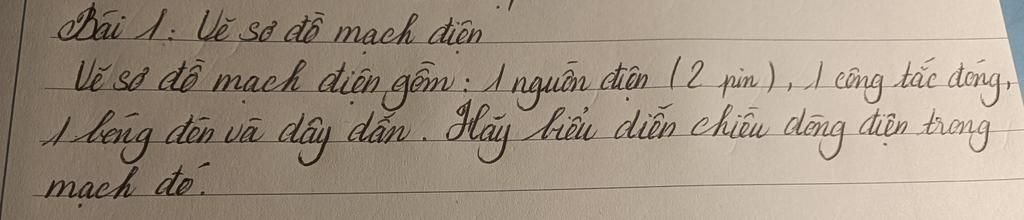 Bài 1: Vẽ sơ đồ mạch điện
Vẽ sơ đồ mạch điện gồm: 1 nguồn điện (2 pin), 1 công tắc đóng,
1 bóng đèn và dây dẫn. Hãy biểu diễn chiều dòng điện trong
mạch đó.